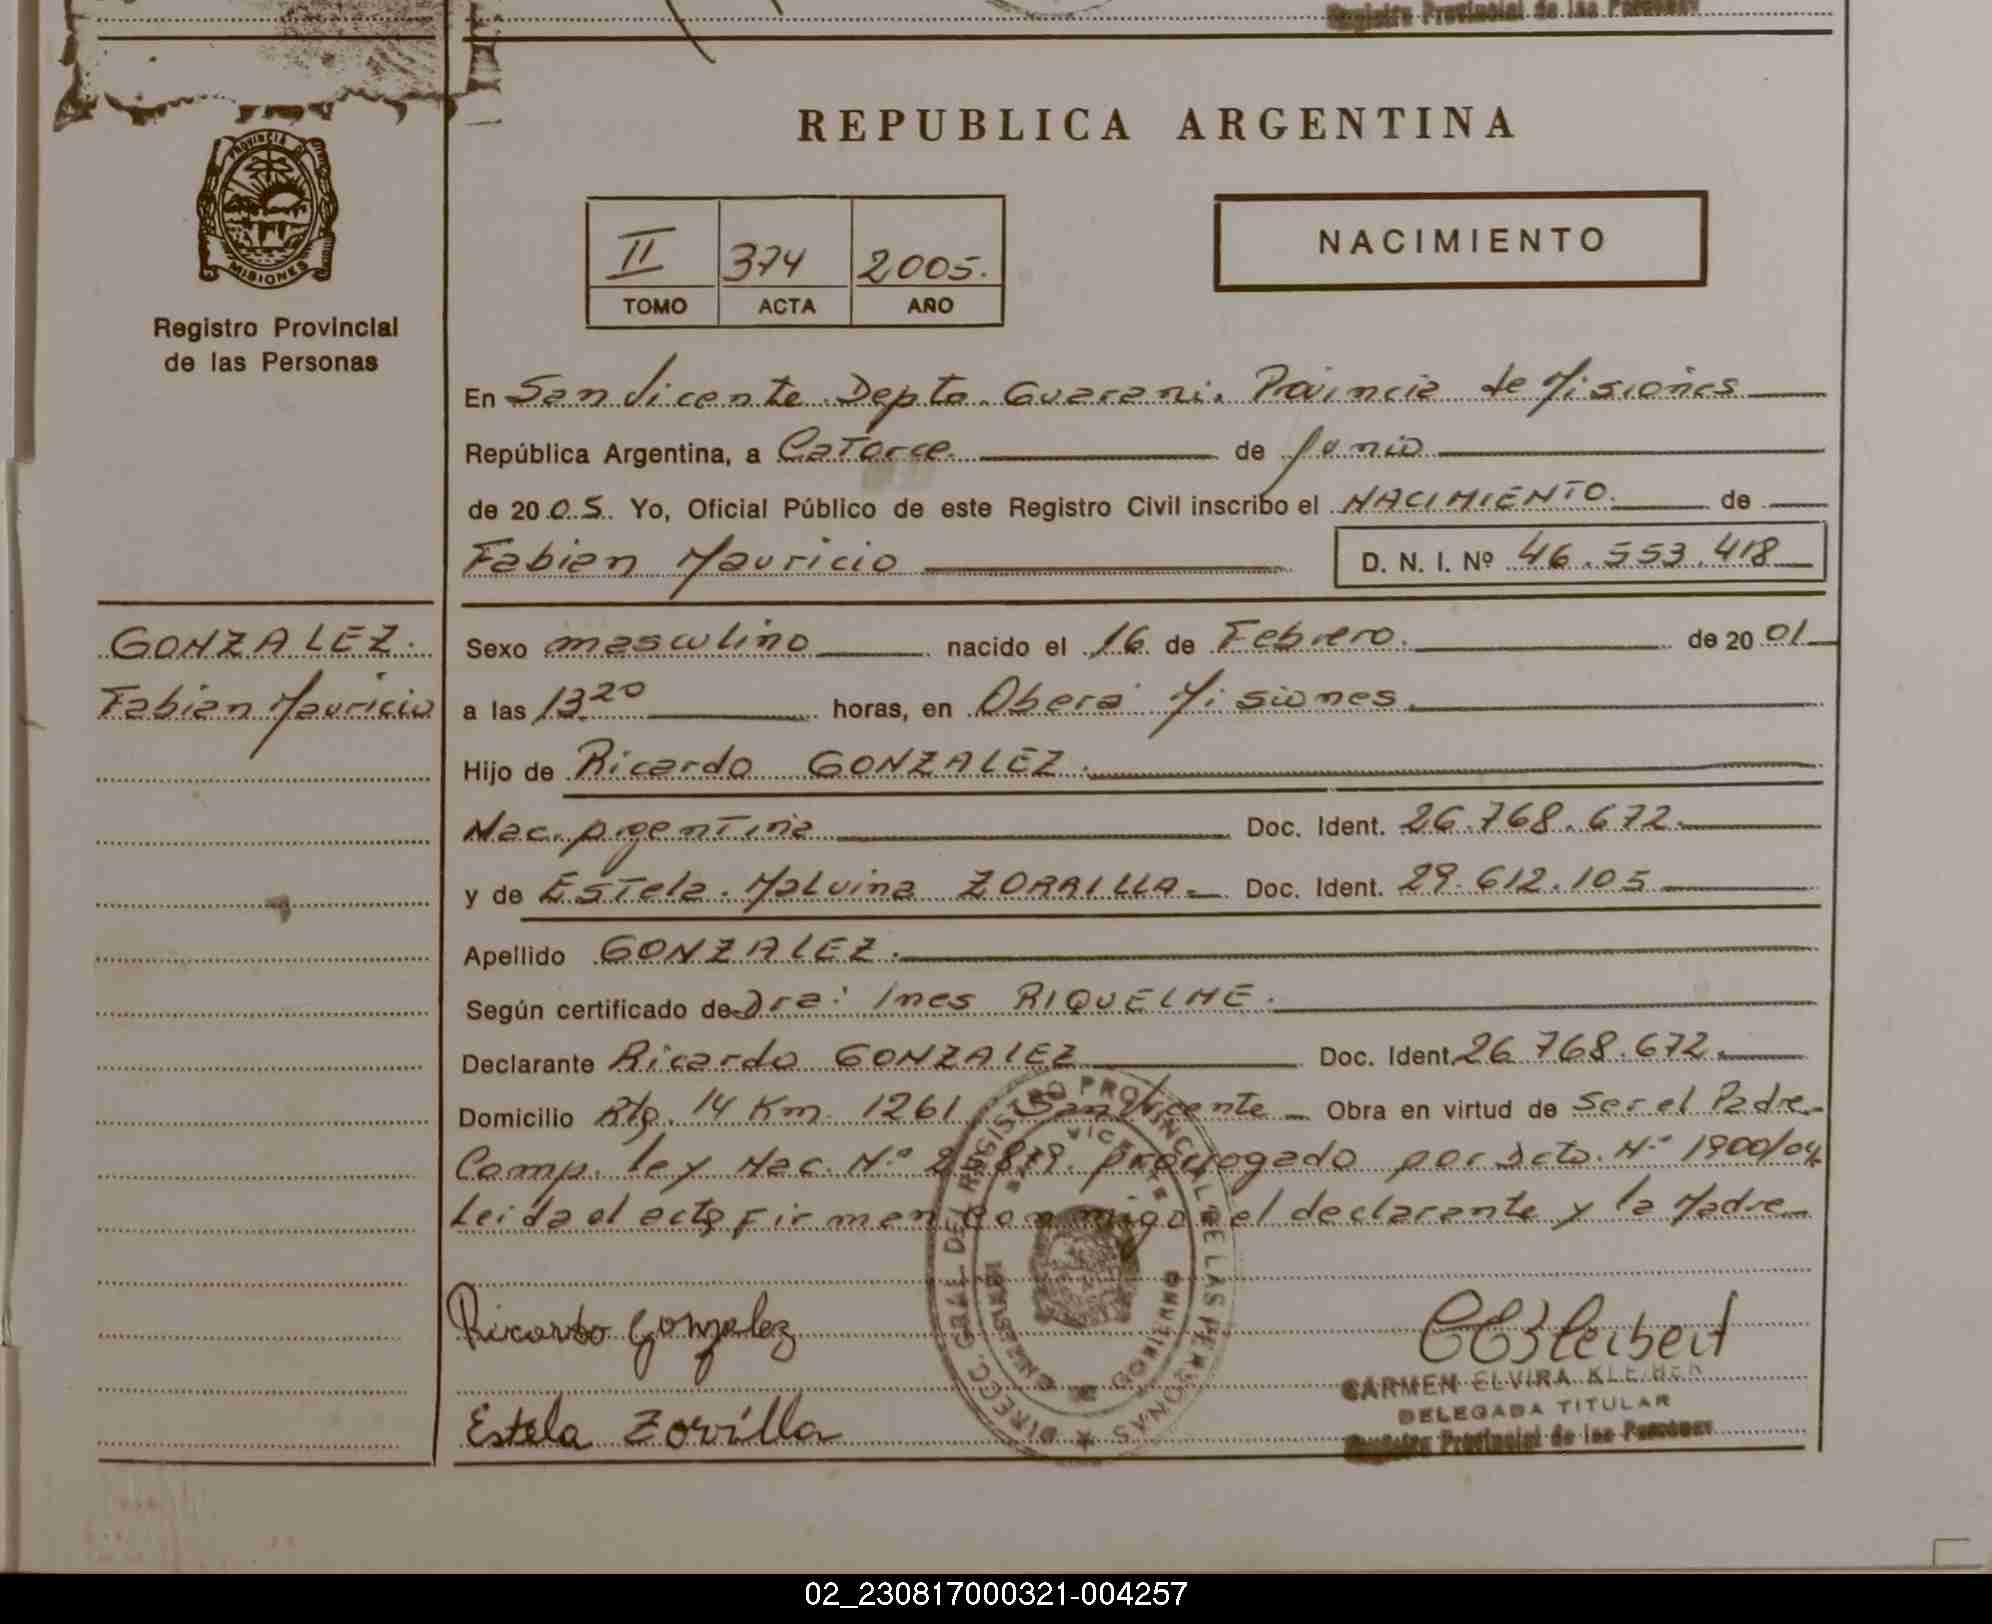 Registro Provincial de las Personas
PROVINCIA DE
MISIONES
Registro Provincial
de las Personas
REPUBLICA ARGENTINA
II 374 2005.
TOMO ACTA AÑO
NACIMIENTO
En San Vicente Depto. Guarani. Provincia de Misiones
República Argentina, a Catorce. de Junio
de 2005. Yo, Oficial Público de este Registro Civil inscribo el NACIMIENTO. de
Fabian Mauricio D. N. I. Nº 46.553.418
GONZALEZ.
Fabian Mauricio
Sexo masculino nacido el 16 de Febrero. de 2001
a las 13.20 horas, en Oberá Misiones.
Hijo de Ricardo GONZALEZ.
Nac. Argentina Doc. Ident. 26.768.672.
y de Estela. Malvina ZORRILLA. Doc. Ident. 29.612.105
Apellido GONZALEZ.
Según certificado de Dra: Ines RIQUELME.
Declarante Ricardo GONZALEZ Doc. Ident. 26.768.672.
Domicilio Rta. 14 Km. 1261 San Vicente Obra en virtud de Ser el Padre
Comp. Ley Nac. N° prorrogado por Dcto. N° 1900/04.
Leida el acta firman conmigo el declarante y la Madre
DIRECC. GRAL. DEL REGISTRO PROVINCIAL DE LAS PERSONAS
Ricardo Gonzalez
Estela Zorrilla
CARMEN ELVIRA
DELEGADA TITULAR
Registro Provincial de las Personas
02_230817000321-004257